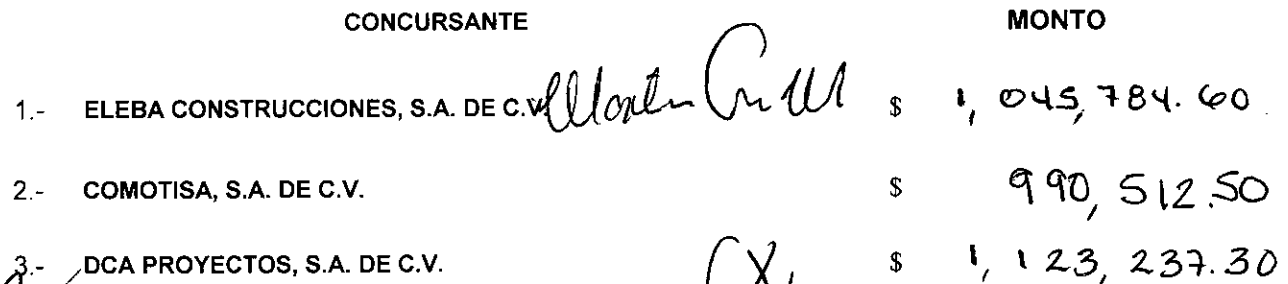 CONCURSANTE MONTO
1.- ELEBA CONSTRUCCIONES, S.A. DE C.V. $ 1,045,784.60
2.- COMOTISA, S.A. DE C.V. $ 990,512.50
3.- DCA PROYECTOS, S.A. DE C.V. $ 1,123,237.30